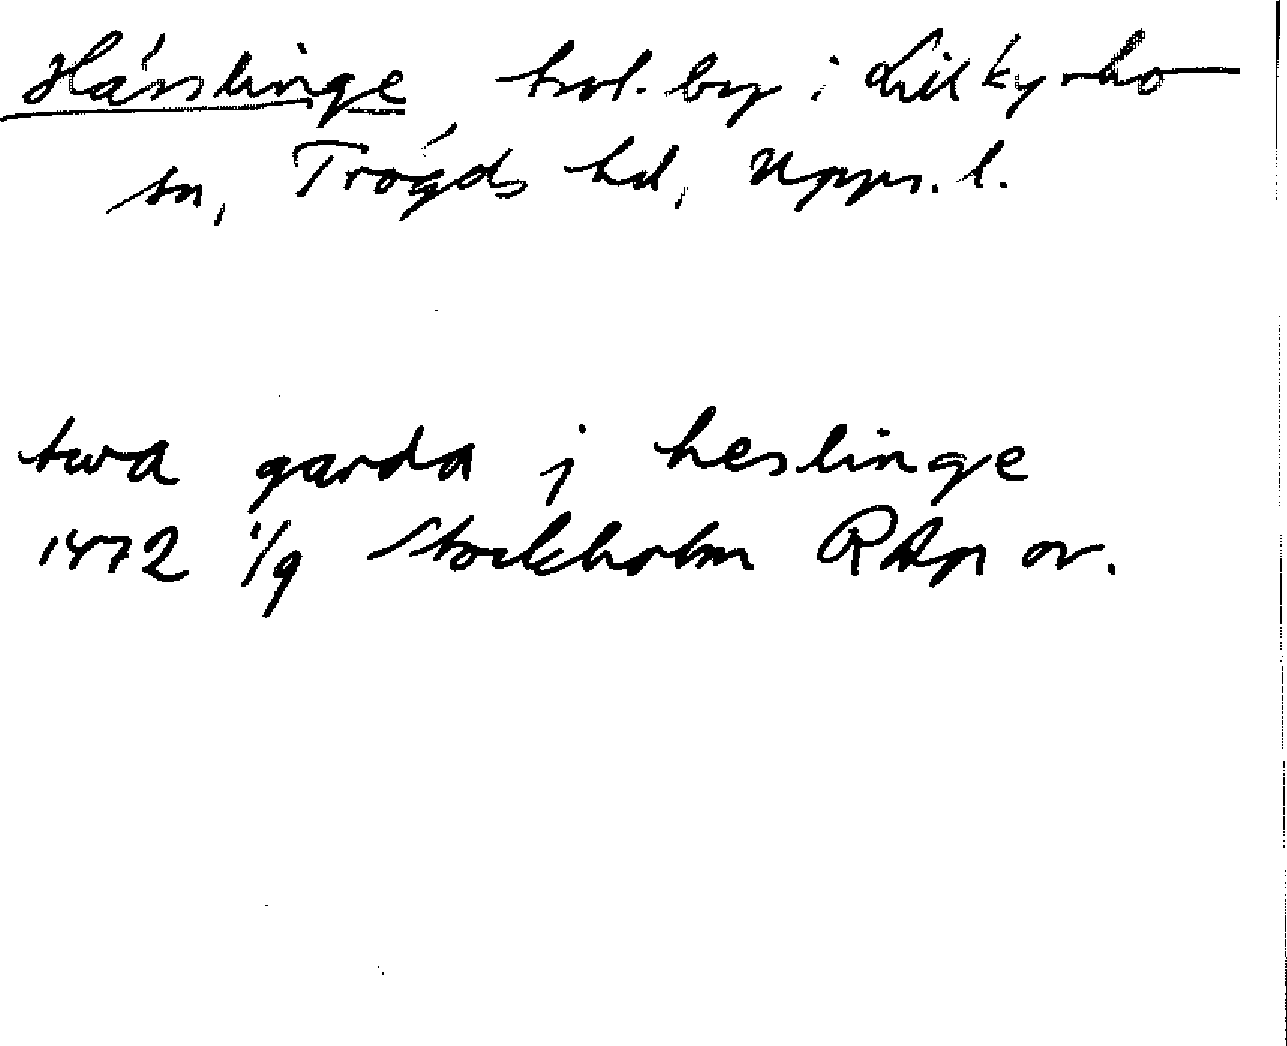 Härslinge, trol. by i Lillkyrko
sn, Trögds hd, Upps. l.
twa garda j heslinge
1472 1/9 Stockholm RAp or.